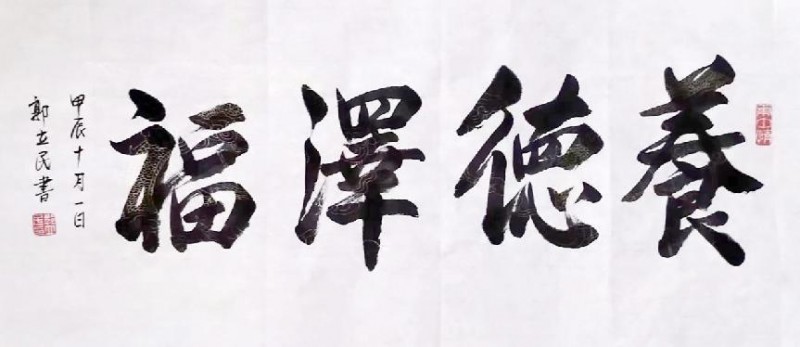 養德澤福
甲辰十月一日
郭立民書